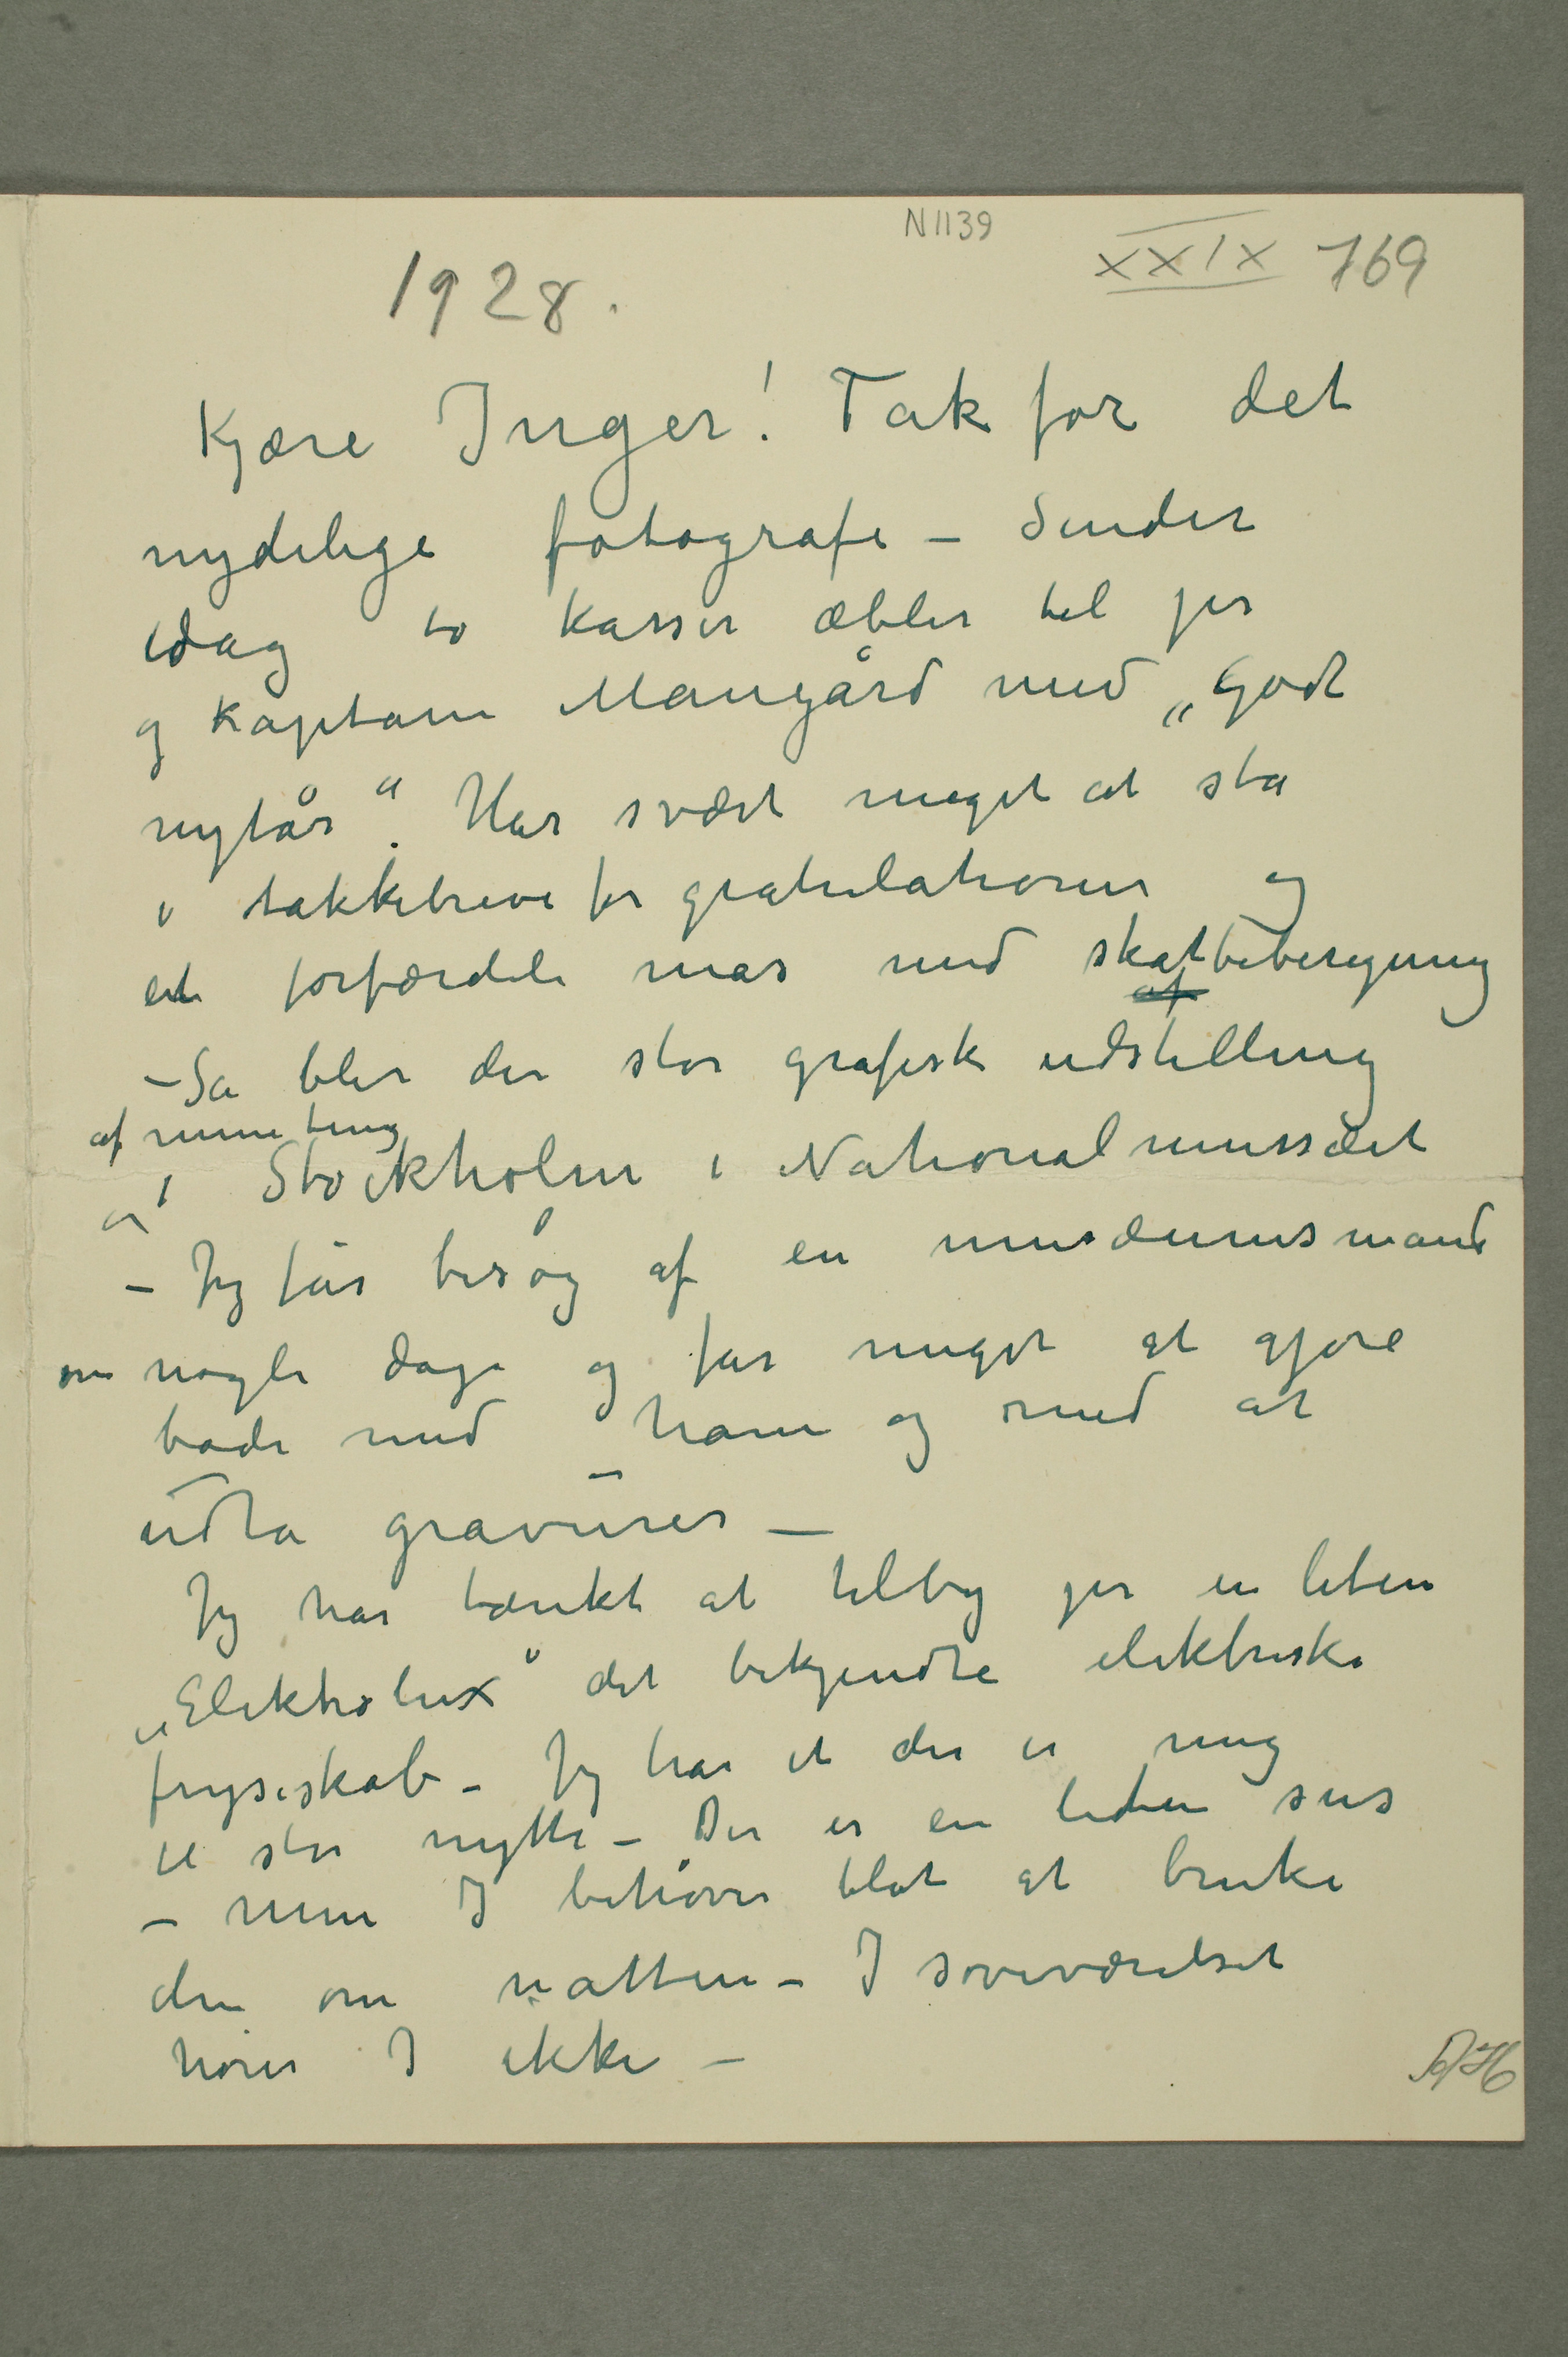 N 1139
XXIX 769
1928.
Kjære Inger! Tak for det
nydelige fotografi – Sender
idag to kasser æbler til jer
og kaptain Mangård med „Godt
nytår“. Har svært meget at stå
i takkebreve for gratulationer og
et forfærdeli mas med skatbeberegning
af
– Så blir der stor grafisk udstilling
af mine ting
i Stockholm i Nationalmussæet
– Jeg får besøg af en musæumsmand
om nogle dage og får meget at gjøre
både med ham og med at
udta gravurer –
Jeg har tænkt at tilby jer en liten
„Elektrolux“ det bekjendte elektriske
fryseskab – Jeg har et der er mig
til stor nytte – Der er en liden sus
– men I behøver blot at bruke
den om natten – I soveværelset
hører I ikke –